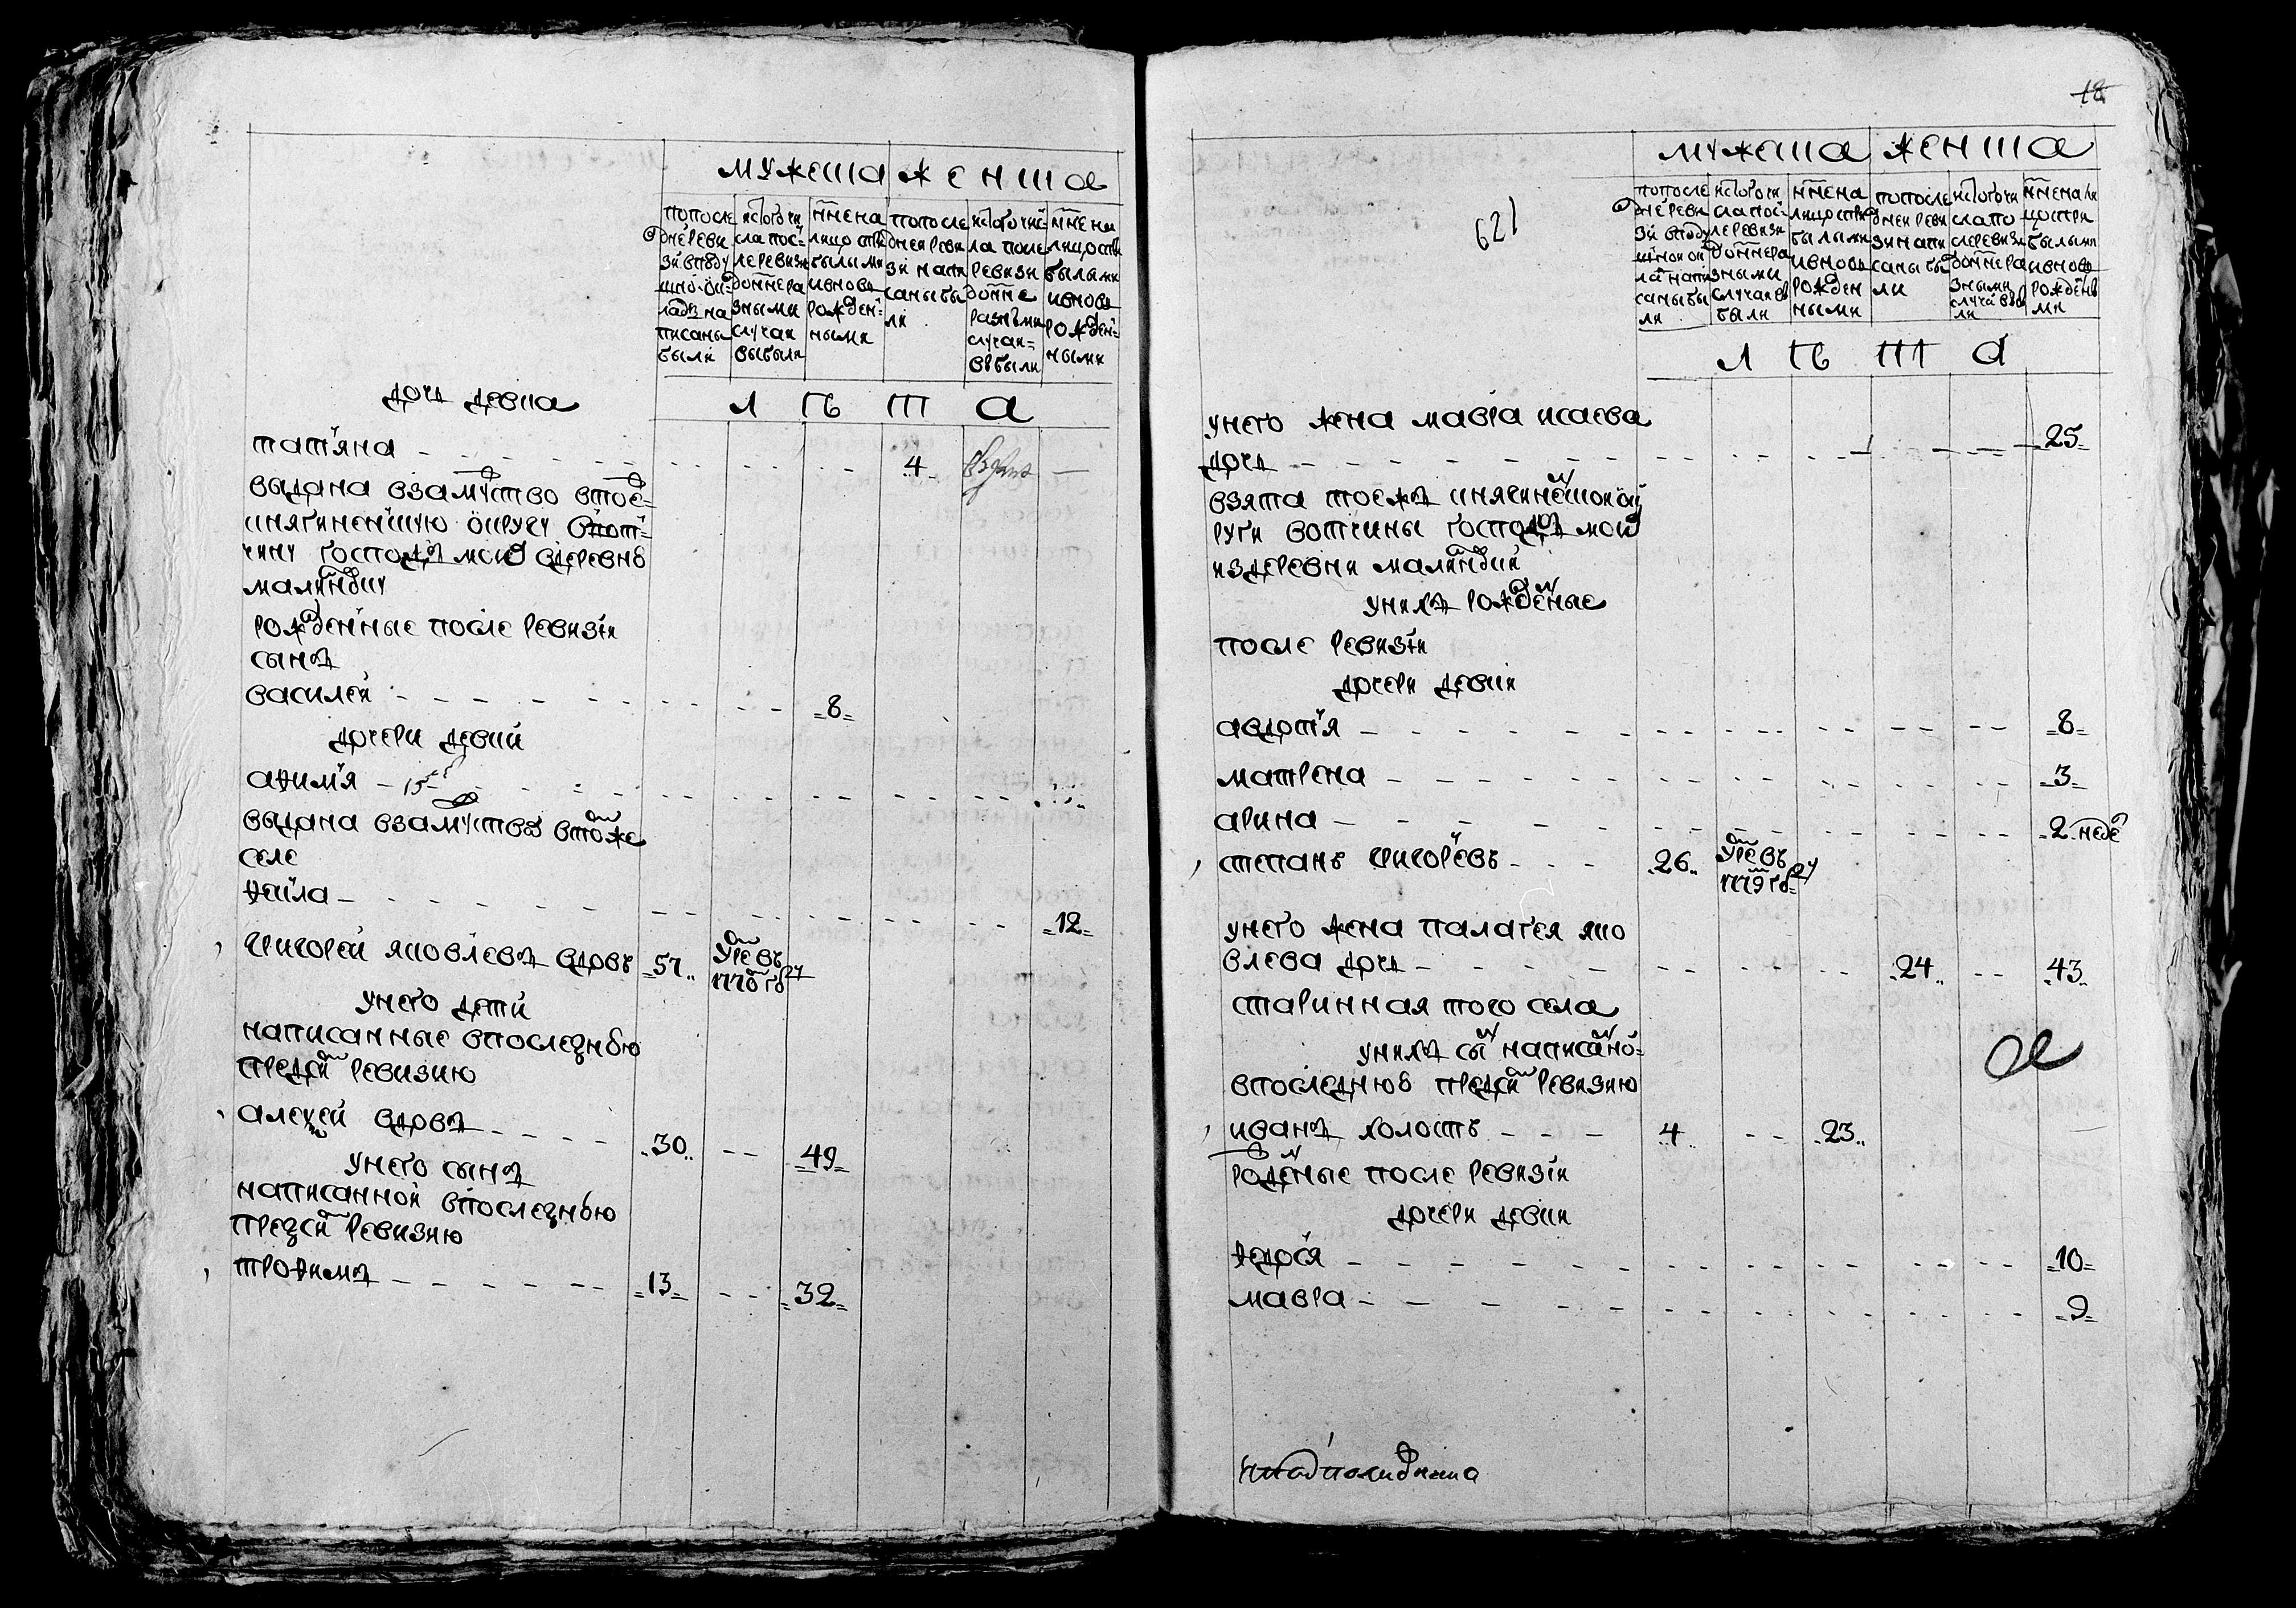 мужеска женска
попосле дней реви зй вподу шно ои ладъ на писаны были
ис того чи сла пос леревизи доннера зными случаи выбыли
ннена лицо сти былыми ивновь рожден ными
попосле дней реви зй напи саны бы ли
ис того чис ла после ревизи донне разными случаи выбыли
ннена лицо сти былыми ивновь рожден ными
л ѣ т а
дочь девка
татьяна - - - 4
выдана взамуство втое
княгиненскую округу вот
чину господъ моих вдеревнѣ
малиновку
рожденные после ревизіи
сынъ
василей - - - 8
дочери девки
афимья - 15
выдана взамуство втоже
селе
фекла - - - 12
григорей яковлевъ вдовъ 57 умре въ 1776 году
унего дети
написанные впоследнюю
предсию ревизию
алексей вдовъ - - - 30 - - 49
унего сынъ
написанной впоследнюю
предсию ревизию
трофимъ - - - 13 - - 32
18
621
мужеска женска
попосле дней реви зй вподу шной ок ла напи саны бы ли
ис того чи сла пос леревизи доннера зными случаи вы были
ннена лицо сти былыми ивновь рожден ными
попосле дней реви зй напи саны бы ли
ис того чи сла по слеревизи доннера зными случаи вы были
ннена ли цо сти былыми ивновь рожден ми
л ѣ т а
унего жена мавра исаева
дочь - - - 25
взята тоежъ княгиненской ок
руги вотчины господъ моих
издеревни малиновки
унихъ рожденые
после ревизіи
дочери девки
авдотья - - - 8
матрена - - - 3
арина - - - 2 неде
степанъ григорьевъ - - - 26 умре въ 1779 году
унего жена палагея яко
влева дочь - - - 24 - - 43
старинная того села
унихъ сын написанной
впоследнюю предсию ревизию
иванъ холостъ - - - 4 - - 23
рожденые после ревизіи
дочери девки
федосья - - - 10
мавра - - - 9